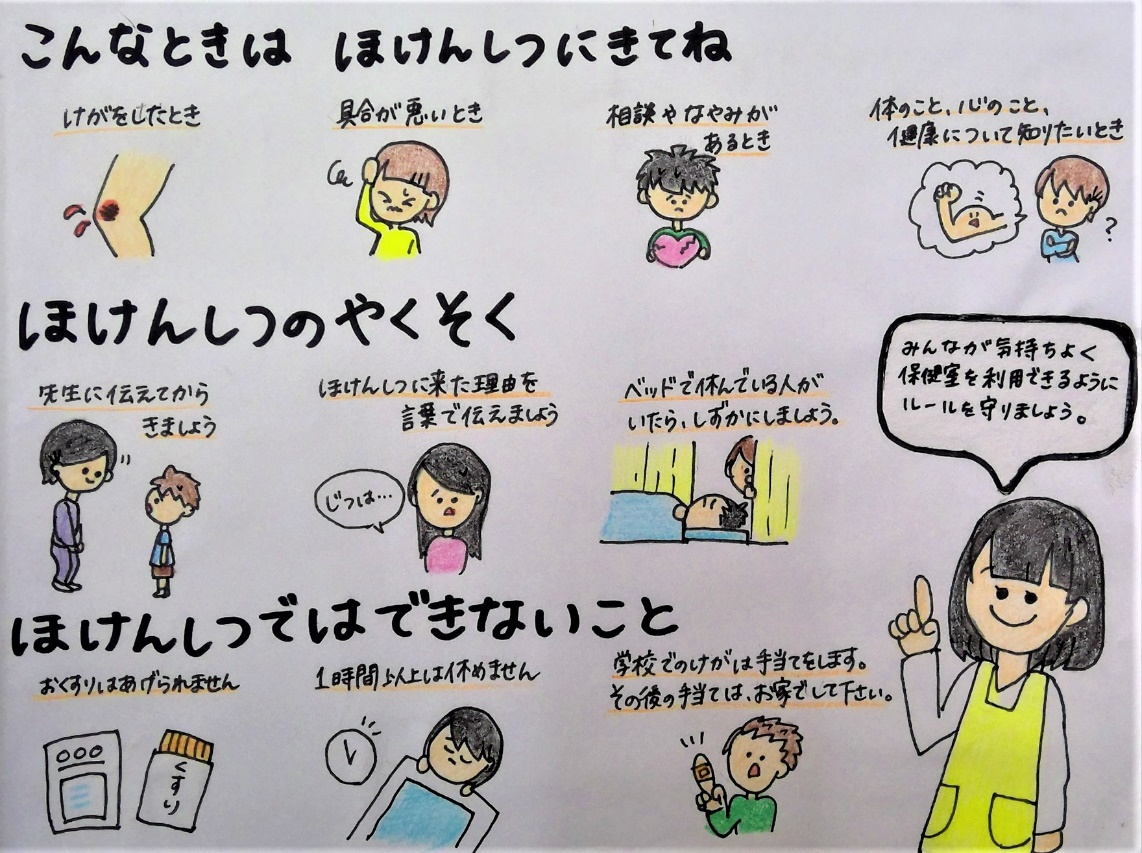 こんなときは ほけんしつにきてね
けがをしたとき
具合が悪いとき
相談やなやみが
あるとき
体のこと、心のこと、
健康について知りたいとき
?
ほけんしつのやくそく
先生に伝えてから
きましょう
ほけんしつに来た理由を
言葉で伝えましょう
じつは…
ベッドで休んでいる人が
いたら、しずかにしましょう。
みんなが気持ちよく
保健室を利用できるように
ルールを守りましょう。
ほけんしつではできないこと
おくすりはあげられません
くすり
1時間以上は休めません
学校でのけがは手当てをします。
その後の手当ては、お家でして下さい。